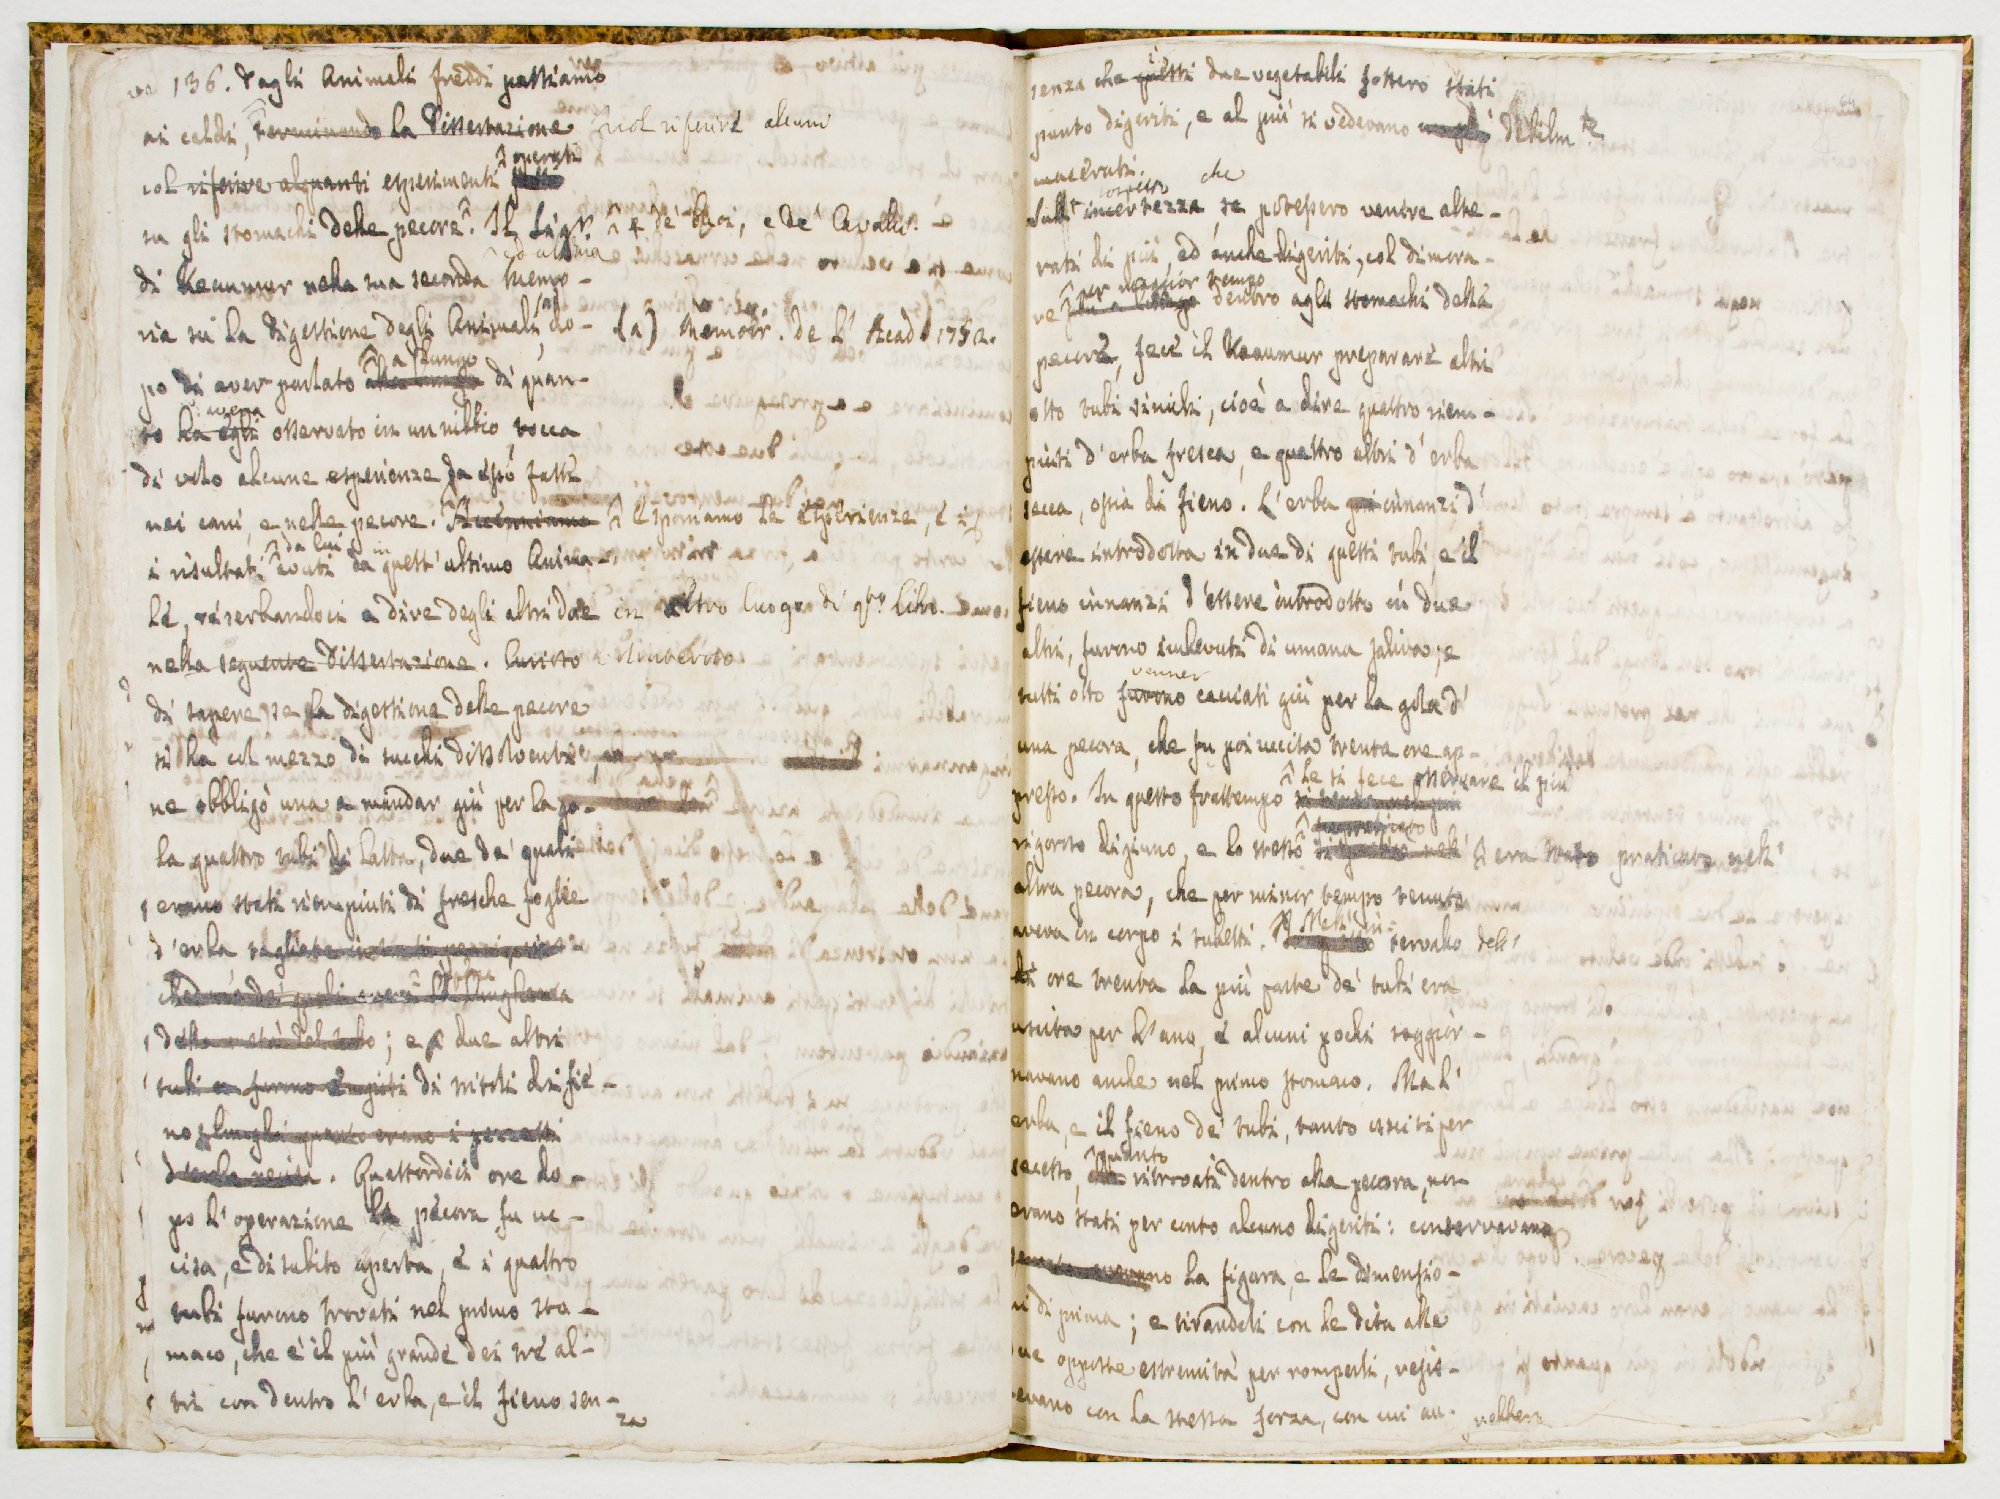 136. Dagli Animali freddi passiamo
ai caldi, terminando la Dissertazione nel riferire alcuni
col riferire alquanti esperimenti operati
su gli stomachi delle pecore. Il Sigr. de' Buoi, e de' Cavalli.
di Reaumur nella sua seconda Memo-
ria su la digestione degli Animali, (a) do- (a) Memoir. de l' Acad. 1752.
po di aver parlato a lungo di quan-
to ha egli osservato in un nibbio, tocca
di volo alcune esperienze da esso fatte
nei cani, e nelle pecore. Esponiamo le esperienze, e i
i risultati da lui avuti in quest' ultimo Anima-
le, riserbandoci a dire degli altri due in altro luogo di qto libr.
nella seguente Dissertazione. Curioso
di sapere se la digestione delle pecore
si ha col mezzo di succhi dissolventi,
ne obbligò una a mandar giù per la go-
la quattro tubi di latta, due de' quali
erano stati riempiuti di fresche foglie
d'erba
; e due altri
tubi furono empiuti di nitoli di fie-
no lunghi quanto erano i pezzetti
. Quattordici ore do-
po l'operazione la pecora fu uc-
cisa, e di subito aperta, e i quattro
tubi furono trovati nel primo sto-
maco, che è il più grande dei tré al-
tri con dentro l'erba, e il fieno sen-
za
senza che questi due vegetabili fossero stati
punto digeriti, e al più si vedevano debilmte
macerati.
Sull' incertezza se potessero venire alte-
rati di più, ed anche digeriti, col dimora-
re per maggior tempo dentro agli stomachi delle
pecore, fece il Reaumur preparare altri
otto tubi simili, cioè a dire quattro riem-
piuti d'erba fresca, e quattro altri d'erba
secca, ossia di fieno. L'erba innanzi d'
essere introdotta in due di questi tubi, e il
fieno innanzi d'essere introdotto in due
altri, furono imbevuti di umana saliva; e
tutti otto furono venner cacciati giù per la gola d'
una pecora, che fu poi uccisa trenta ore ap-
presso. In questo frattempo le si fece osservare il più
rigoroso digiuno, e lo stesso era stato praticato nell'
altra pecora, che per minor tempo tenuto
aveva in corpo i tubetti. Nell' intervallo dell'
ore trenta la più parte de' tubi era
uscita per l'ano, e alcuni pochi soggior-
navano anche nel primo stomaco. Ma l'
erba, e il fieno de' tubi, tanto usciti per
secesso, quanto ritrovati dentro alla pecora, non
erano stati per conto alcuno digeriti: conservavano
la figura, e le dimensio-
ni di prima; e tirandoli con le dita alle
due opposte estremità per romperli, resis-
tevano con la stessa forza, con cui au-